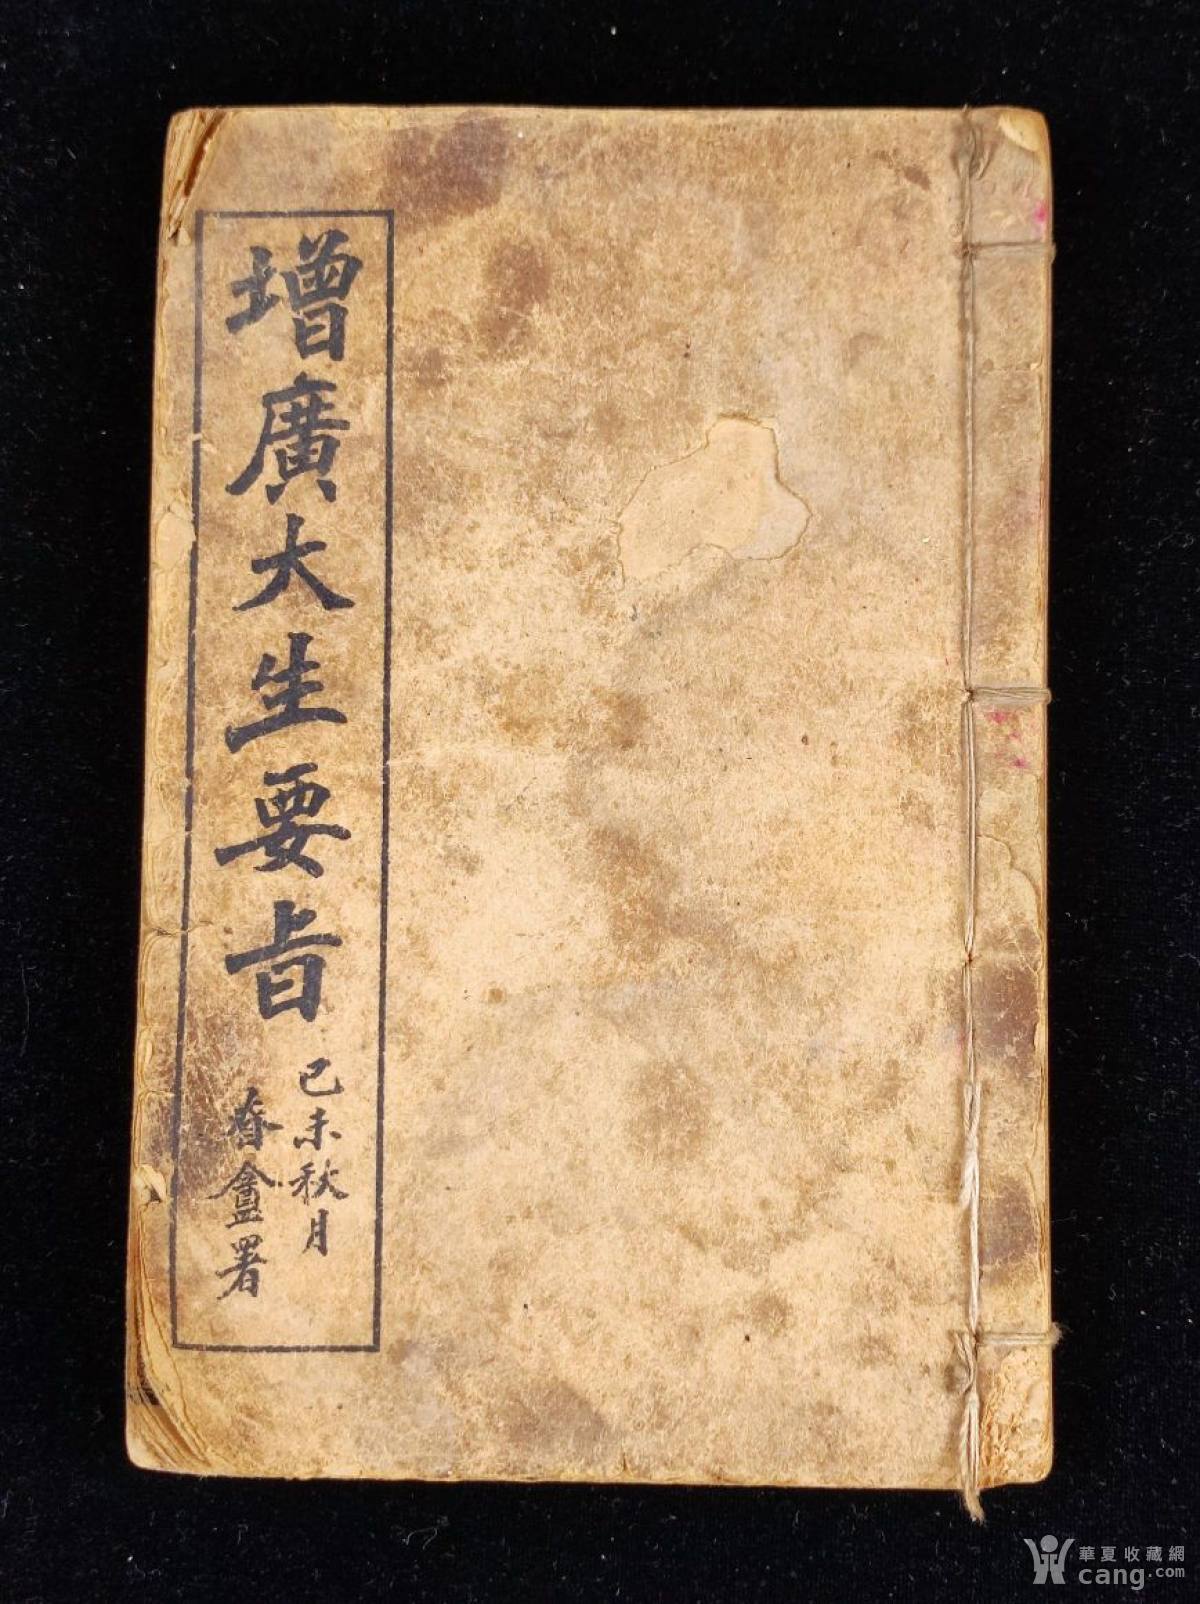 增廣大生要旨
己未秋月
春盦署
華夏收藏網
cang.com